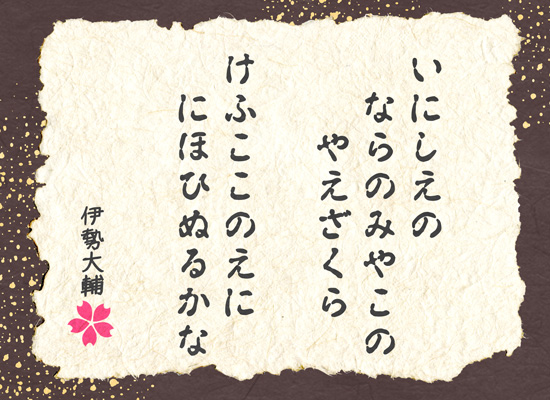 いにしえの
ならのみやこの
やえざくら
けふここのえに
にほひぬるかな
伊勢大輔